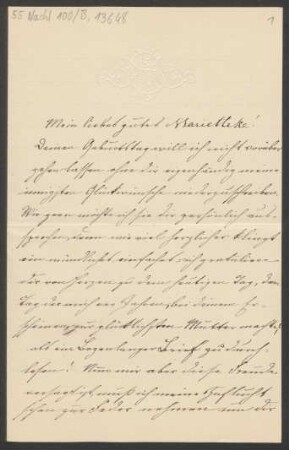 55 Nachl 100/B, 13648
1
Mein liebes gutes Marielleke!
Deinen Geburtstag will ich nicht vorüber
gehen lassen, ohne dir eigenhändig meine
innigsten Glückwünsche niederzuschreiben.
Wie gern möchte ich sie dir persönlich aus-
sprechen, denn wie viel herzlicher klingt
ein mündliches einfaches ich gratuliere
dir von Herzen zu dem heutigen Tag, dem
Tag der mich vor Jahren, bei deinem Er-
scheinen, zur glücklichsten Mutter machte,
als ein bogenlanger Brief zu durch-
lesen! Nun mir aber diese Freude
versagt ist, muß ich meine Zuflucht
schon zur Feder nehmen um dir